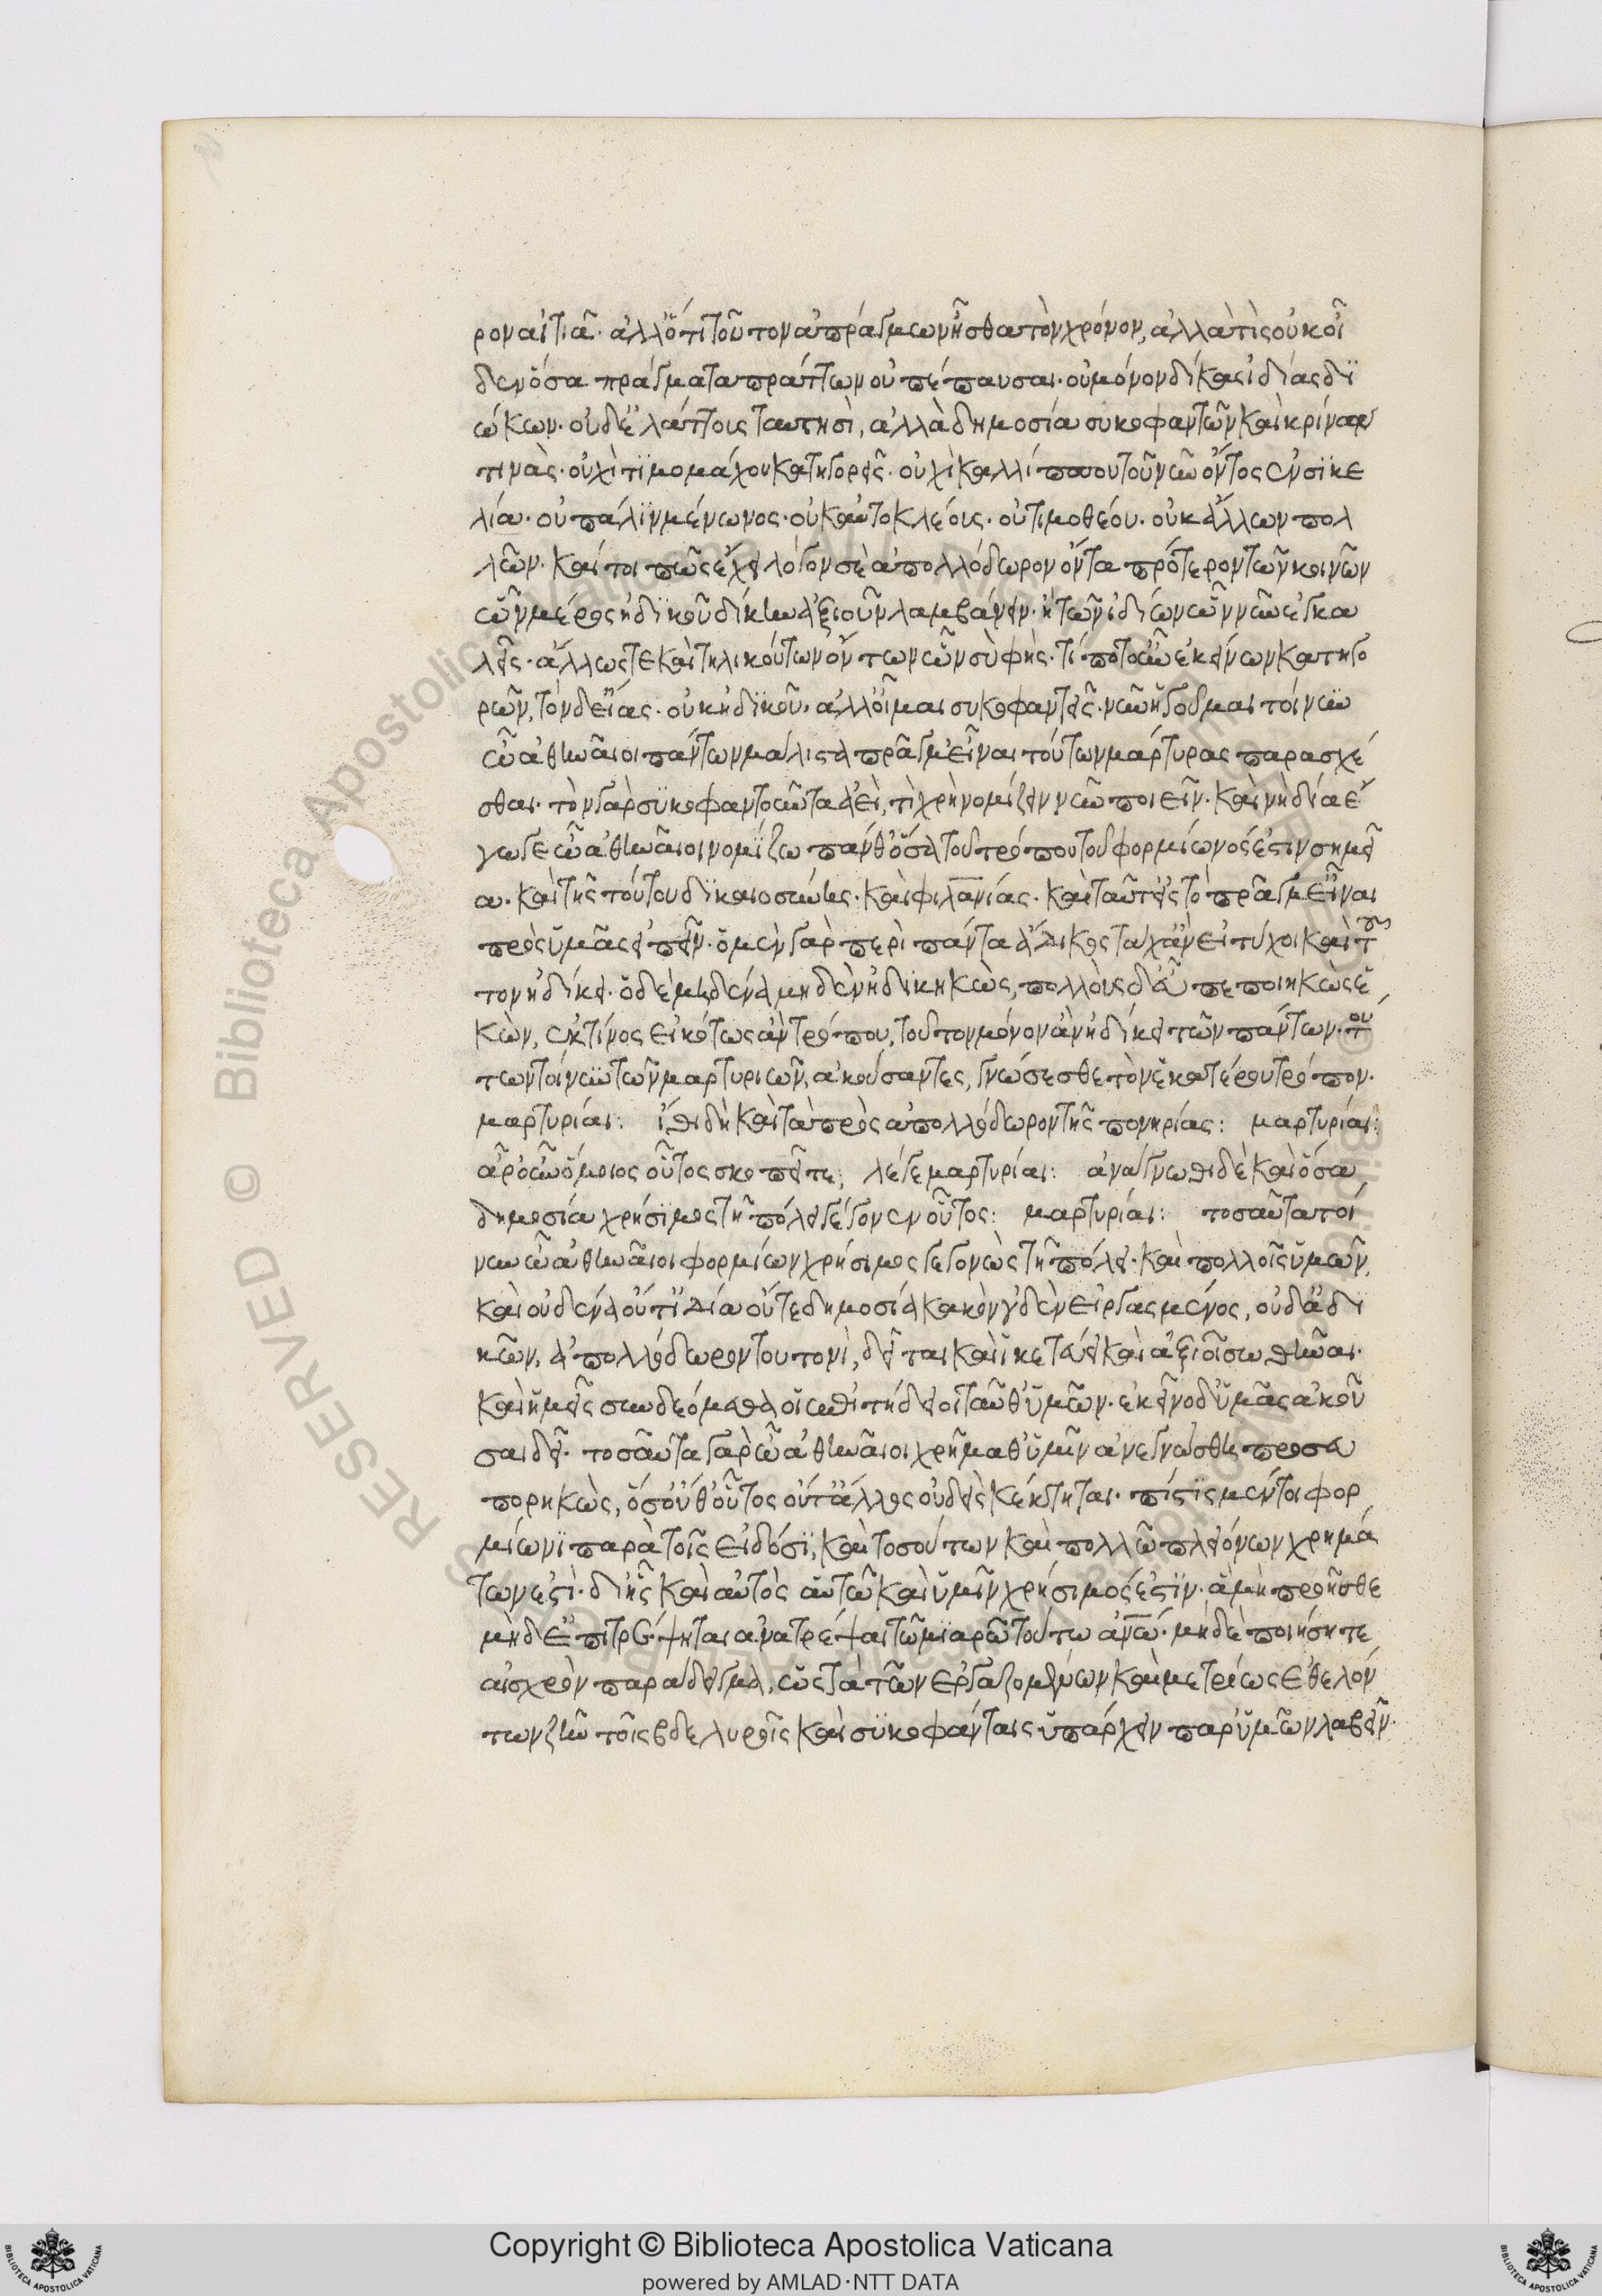 ρον αἰτιᾶ. ἀλλ' ὅτι τοῦτον ἀπράγμων ἦσθα τὸν χρόνον, ἀλλὰ τὶς οὐκ οἶ
δεν ὅσα πράγματα πράττων οὐ πέπαυσαι. οὐ μόνον δίκας ἰδίας δϊ
ώκων. οὐδ' ἐλάττους ταυτησὶ, ἀλλὰ δημοσία συκοφαντῶν καὶ κρίνων
τινὰς. οὐχὶ τϊμομάχου κατηγορεῖς. οὐχὶ καλλίππου τοῦ νῦν ὄντος ἐν σϊκε
λία. οὐ πάλϊν μένωνος. οὐκ αὐτοκλέους. οὐ τιμοθέου. οὐκ ἄλλων πολ
λῶν. καίτοι πῶς ἔχει λόγον σὲ ἀπολλόδωρον ὄντα πρότερον τῶν κοινῶν
ὧν μέρος ἠδϊκοῦ δίκην ἀξιοῦν λαμβάνειν. ἢ τῶν ἰδίων ὧν νῦν ἐγκα
λεῖς. ἄλλως τε καὶ τηλικούτων ὄντων ὧν σὺ φὴς. τί ποτ' οὖν ἐκείνων κατηγο
ρῶν, τόνδ' εἴας. οὐκ ἠδϊκοῦ. ἀλλ' οἶμαι συκοφαντεῖς. νῦν ἡγοῦμαι τοίνυν
ὦ ἀθηναῖοι πάντων μάλιστα πρᾶγμ' εἶναι τούτων μάρτυρας παρασχέ
σθαι. τὸν γὰρ συκοφαντοῦντα ἀεὶ, τὶ χρὴ νομίζειν νῦν ποιεῖν. καὶ νὴ δία ἔ
γωγε ὦ ἀθηναῖοι νομίζω πάνθ' ὅσα τοῦ τρόπου τοῦ φορμίωνός ἐστιν σημεῖ
α. καὶ τῆς τούτου δϊκαιοσύνης. καὶ φιλανίας. καὶ ταῦτ' εἰς τὸ πρᾶγμ' εἶναι
πρὸς ὑμᾶς εἰπεῖν. ὁ μὲν γὰρ περὶ πάντα ἄδικος τάχ' ἂν εἰ τύχοι καὶ τοῦ
τον ἠδίκει. ὁ δὲ μηδένα μηδὲν ἠδικηκὼς, πολλοὺς δ' εὖ πεποιηκὼς ἑ
κὼν, ἐκ τίνος εἰκότως ἂν τρόπου, τοῦτον μόνον ἂν ἠδίκει τῶν πάντων. τού
των τοίνυν τῶν μαρτυριῶν, ἀκούσαντες, γνώσεσθε τὸν ἑκατέρου τρόπον.
μαρτυρίαι: ἴθι δὴ καὶ τὰ πρὸς ἀπολλόδωρον τῆς πονηρίας: μαρτυρίαι:
ἆρ' οὖν ὅμοιος οὗτος σκοπεῖτε; λέγε μαρτυρίαι: ἀνάγνωθι δὲ καὶ ὅσα
δημοσία χρήσϊμος τῆ πόλει γέγονεν οὗτος: μαρτυρίαι: τοσαῦτα τοί
νυν ὦ ἀθηναῖοι φορμίων χρήσιμος γεγονὼς τῆ πόλει. καὶ πολλοῖς ὑμῶν,
καὶ οὐδένα οὔτ' ϊδία οὔτε δημοσία κακὸν οὐδὲν εἰργασμένος, οὐδ' ἀδι
κῶν, ἀπολλόδωρον τουτονὶ, δεῖται καὶ ἱκετεύει καὶ ἀξιοῖ σωθῆναι.
καὶ ἡμεῖς συνδεόμεθα οἱ ἐπιτήδειοι ταῦθ' ὑμῶν. ἐκεῖνο δ' ὑμᾶς ἀκοῦ
σαι δεῖ. τοσαῦτα γὰρ ὦ ἀθηναῖοι χρήμαθ' ὑμῖν ἀνεγνώσθη προσευ
πορηκὼς, ὅσ' οὔθ' οὗτος οὔτ' ἄλλος οὐδεὶς κέκτηται. πίστϊς μέντοι φορ
μίωνϊ παρὰ τοῖς εἰδόσϊ, καὶ τοσούτων καὶ πολλῶ πλειόνων χρημά
των ἐστὶ. δι' ἧς καὶ αὐτὸς αὑτῶ καὶ ὑμῖν χρήσιμός ἐστϊν. ἃ μὴ προῆσθε
μὴδ' ἐπιτρέψηται ἀνατρέψαι τῶ μϊαρῶ τούτω ἀνω. μηδὲ ποιήσητε
αἰσχρὸν παράδειγμα, ὡς τὰ τῶν ἐργαζομένων καὶ μετρίως ἐθελόν
των ζῆν τοῖς βδελυροῖς καὶ συκοφάνταις ὑπάρχειν παρ' ὑμῶν λαβεῖν.
Copyright © Biblioteca Apostolica Vaticana
powered by AMLAD·NTT DATA